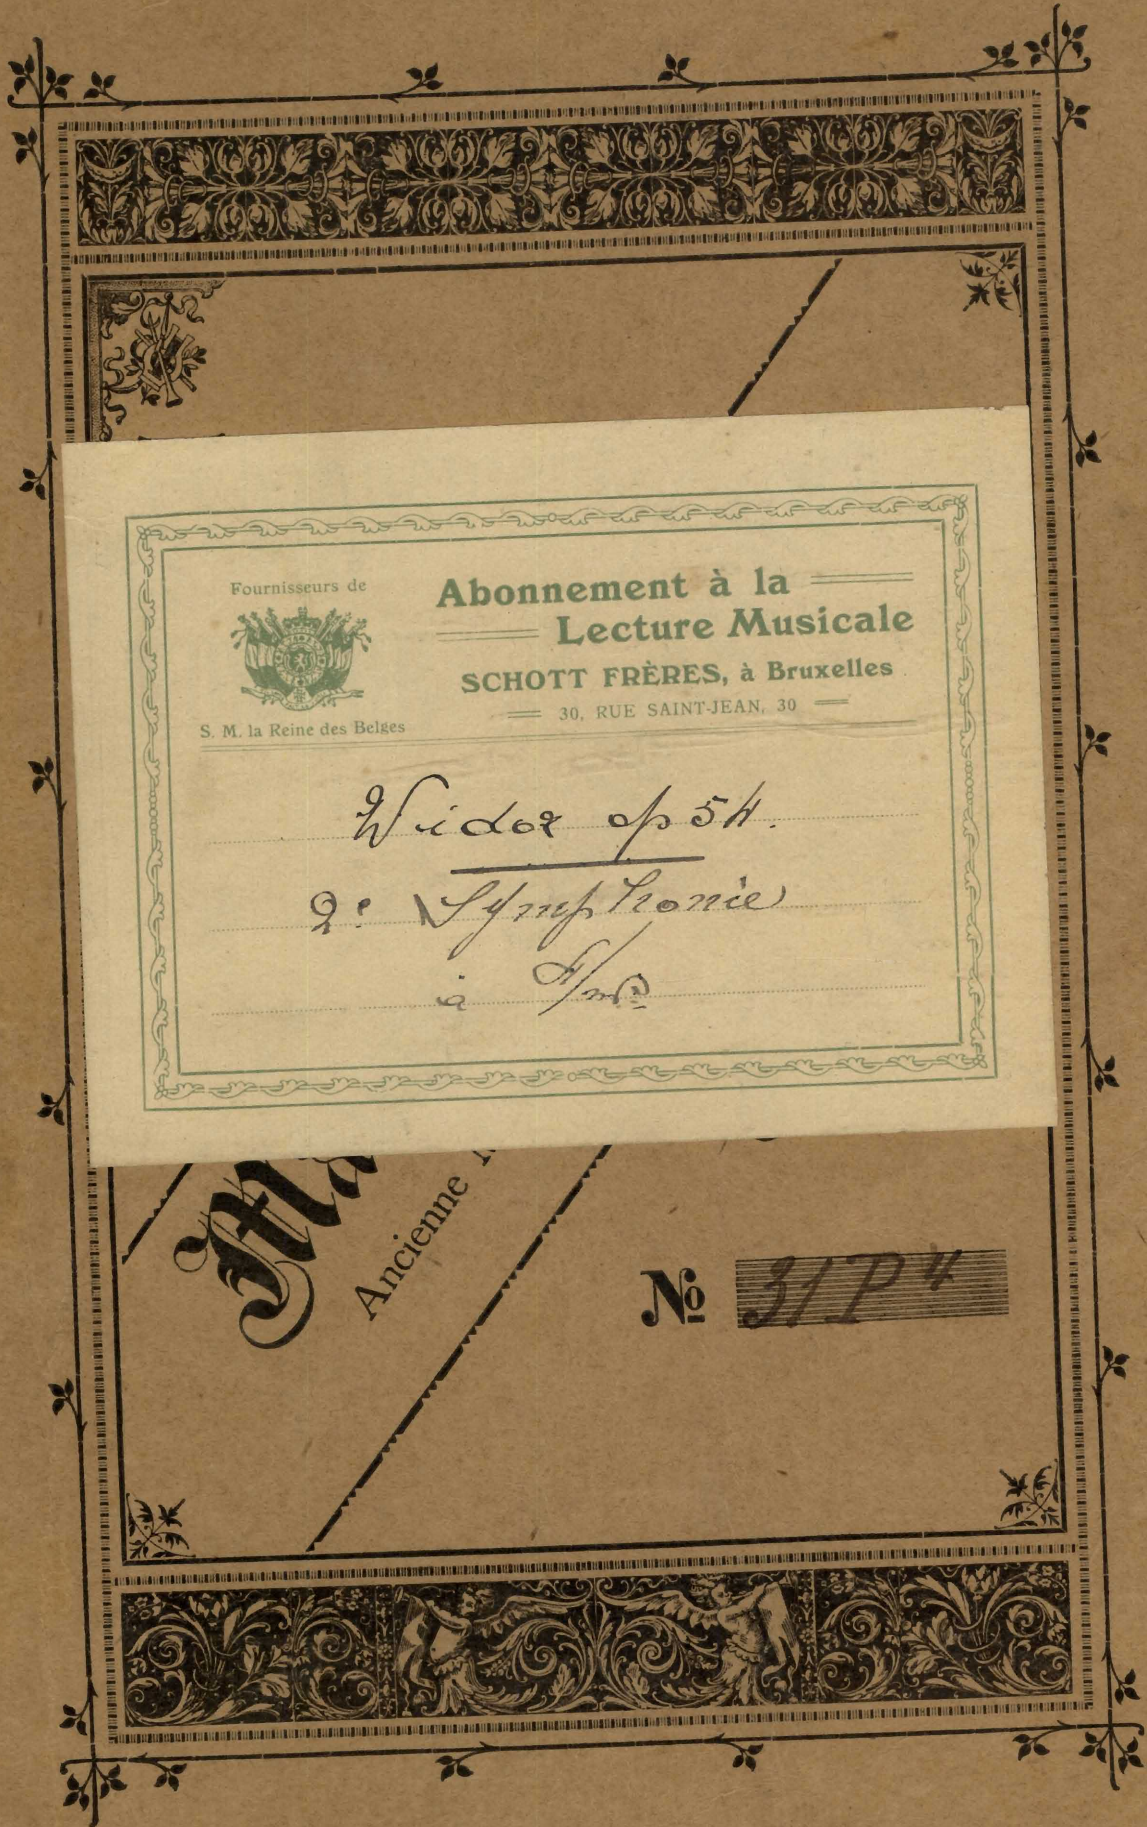 Fournisseurs de
S. M. la Reine des Belges
Abonnement à la
Lecture Musicale
SCHOTT FRÈRES, à Bruxelles
30, RUE SAINT-JEAN, 30
Widor op 54.
2e Symphonie
à
Ancienne
No 31P4